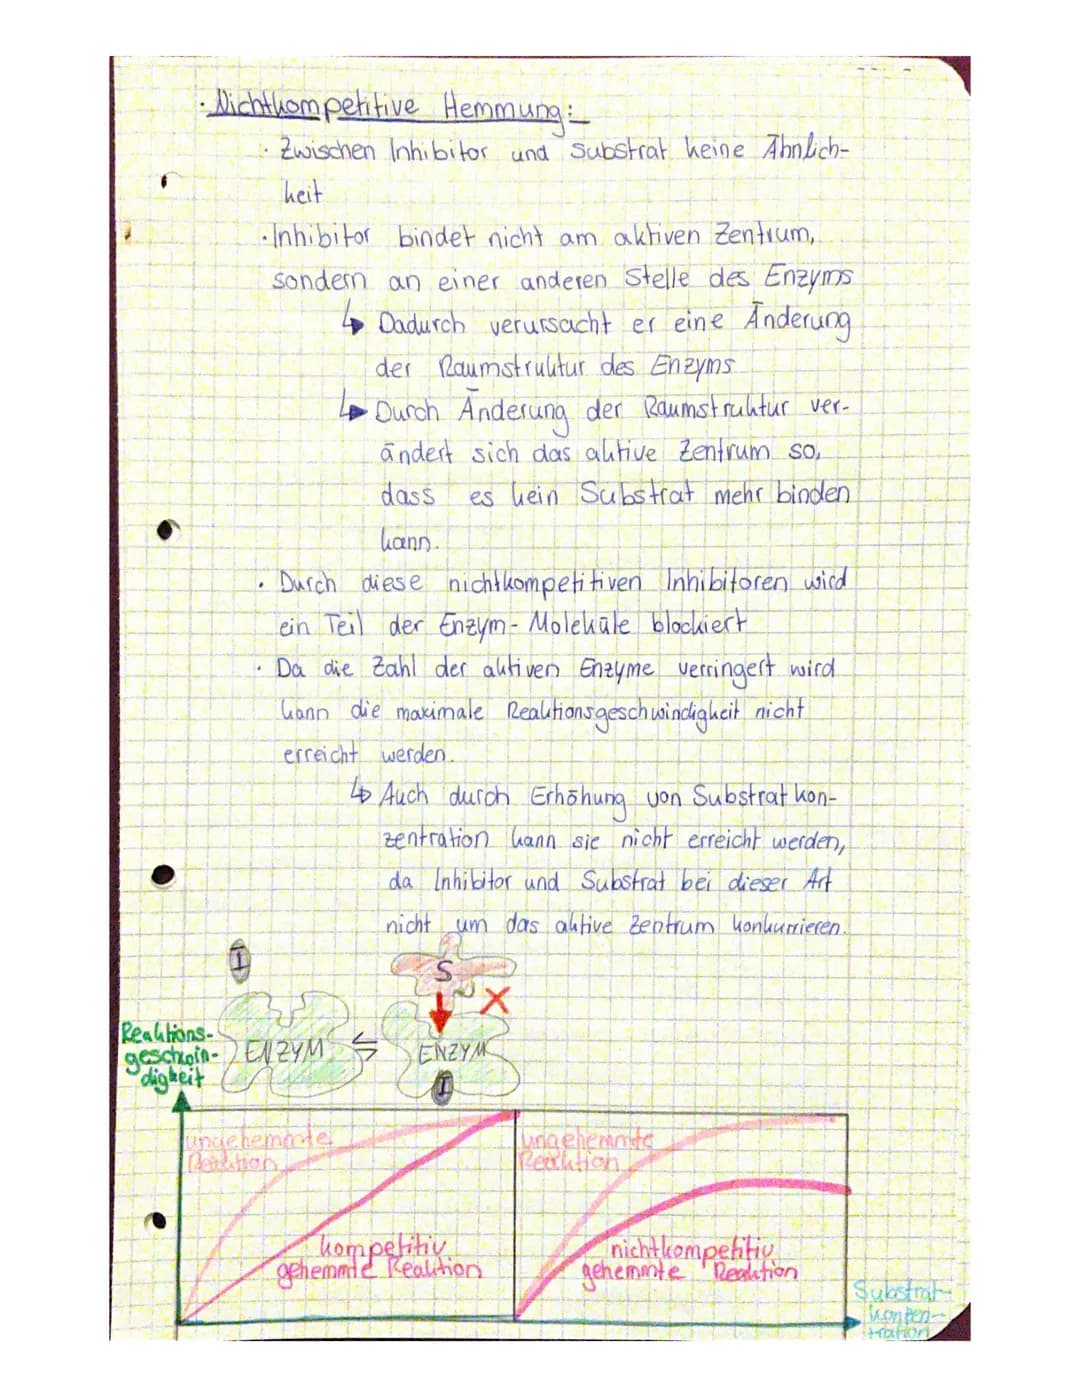 · Nichtkompetitive Hemmung:
· Zwischen Inhibitor und Substrat keine Ähnlich-
keit
· Inhibitor bindet nicht am aktiven Zentrum,
sondern an einer anderen Stelle des Enzyms
↳ Dadurch verursacht er eine Änderung
der Raumstruktur des Enzyms
↳ Durch Änderung der Raumstruktur ver-
ändert sich das aktive Zentrum so,
dass es kein Substrat mehr binden
kann.
· Durch diese nichtkompetitiven Inhibitoren wird
ein Teil der Enzym-Moleküle blockiert
· Da die Zahl der aktiven Enzyme verringert wird
kann die maximale Reaktionsgeschwindigkeit nicht
erreicht werden.
↳ Auch durch Erhöhung von Substratkon-
zentration kann sie nicht erreicht werden,
da Inhibitor und Substrat bei dieser Art
nicht um das aktive Zentrum konkurrieren.
I
S
X
ENZYM ⇋ ENZYM
I
Reaktions-
geschwin-
digkeit
ungehemmte
Reaktion
kompetitiv
gehemmte Reaktion
ungehemmte
Reaktion
nichtkompetitiv
gehemmte Reaktion
Substrat-
konzen-
tration